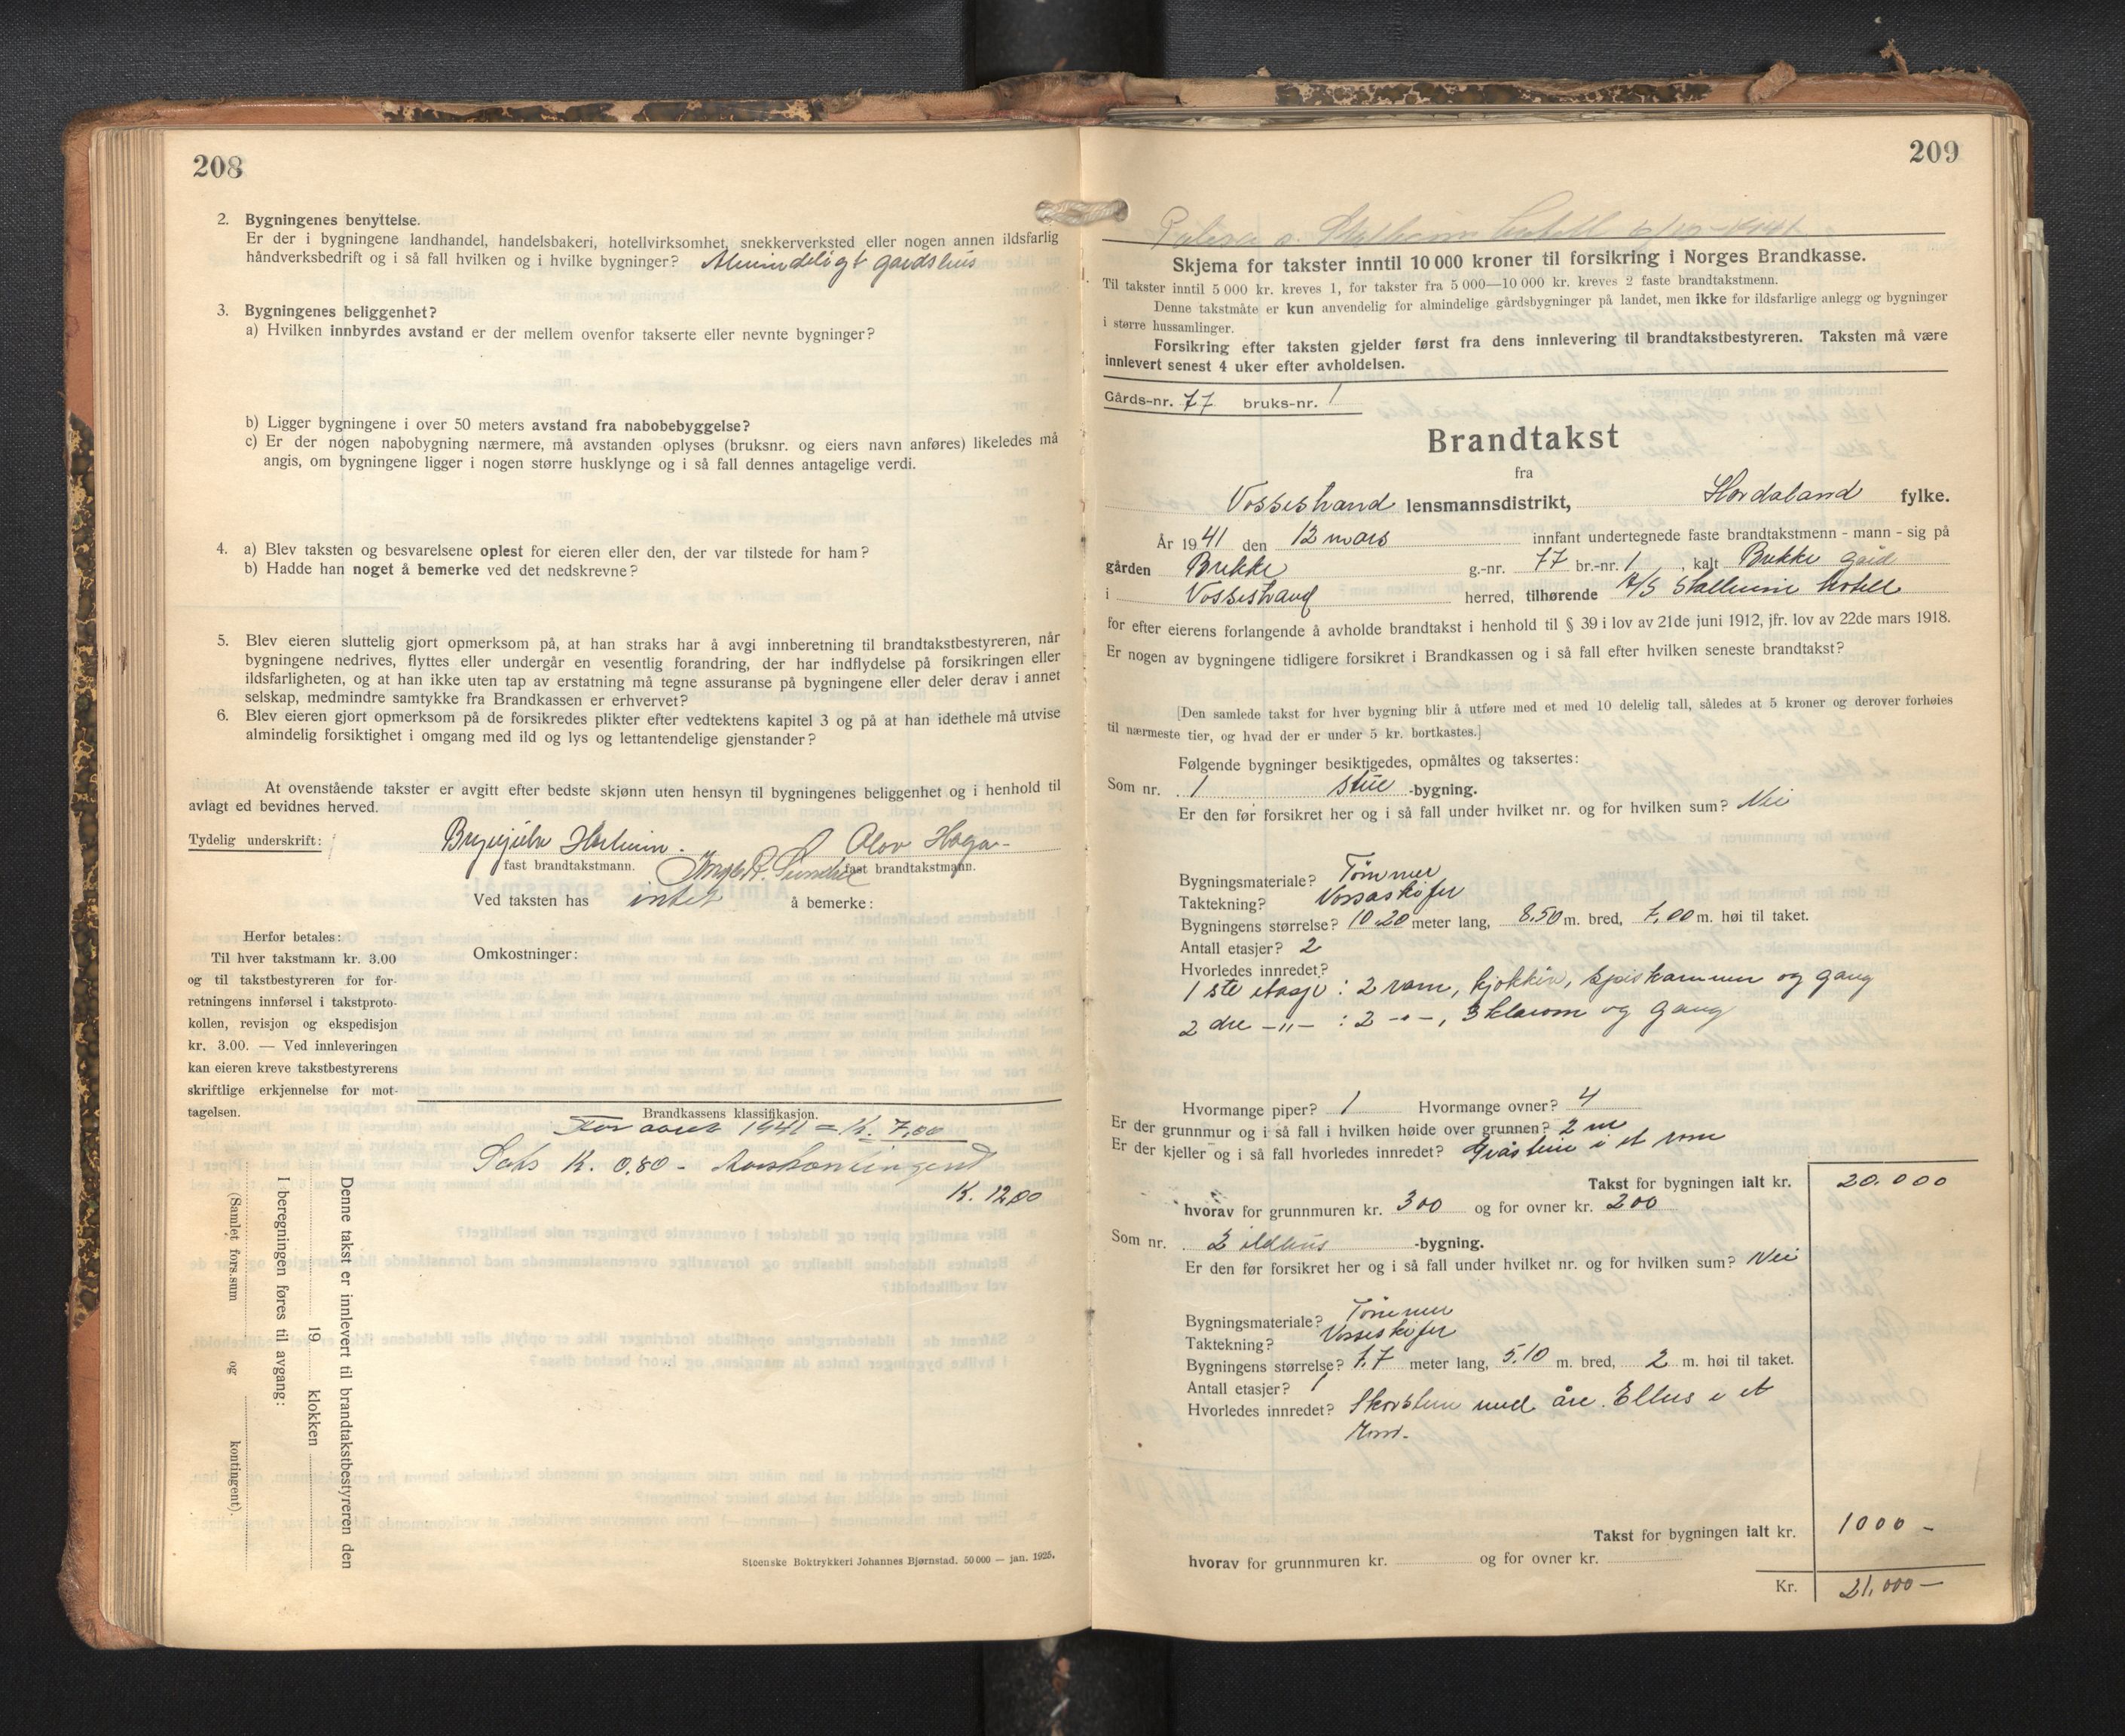 208
2. Bygningenes benyttelse.
Er der i bygningene landhandel, handelsbakeri, hotellvirksomhet, snekkerverksted eller nogen annen ildsfarlig
håndverksbedrift og i så fall hvilken og i hvilke bygninger? Almindeligt gardshus
3. Bygningenes beliggenhet?
a) Hvilken innbyrdes avstand er der mellem ovenfor takserte eller nevnte bygninger?
b) Ligger bygningene i over 50 meters avstand fra nabobebyggelse?
c) Er der nogen nabobygning nærmere, må avstanden oplyses (bruksnr. og eiers navn anføres) likeledes må
angis, om bygningene ligger i nogen større husklynge og i så fall dennes antagelige verdi.
4. a) Blev taksten og besvarelsene oplest for eieren eller den, der var tilstede for ham?
b) Hadde han noget å bemerke ved det nedskrevne?
5. Blev eieren sluttelig gjort opmerksom på, at han straks har å avgi innberetning til brandtakstbestyreren, når
bygningene nedrives, flyttes eller undergår en vesentlig forandring, der har indflydelse på forsikringen eller
ildsfarligheten, og at han ikke uten tap av erstatning må tegne assuranse på bygningene eller deler derav i annet
selskap, medmindre samtykke fra Brandkassen er erhvervet?
6. Blev eieren gjort opmerksom på de forsikredes plikter efter vedtektens kapitel 3 og på at han idethele må utvise
almindelig forsiktighet i omgang med ild og lys og lettantendelige gjenstander?
At ovenstående takster er avgitt efter bedste skjønn uten hensyn til bygningenes beliggenhet og i henhold til
avlagt ed bevidnes herved.
Tydelig underskrift: Olav Haga
fast brandtakstmann. fast brandtakstmann.
Ved taksten has intet å bemerke:
Herfor betales:
Til hver takstmann kr. 3.00
og til takstbestyreren for for-
retningens innførsel i takstproto-
kollen, revisjon og ekspedisjon
kr. 3.00. — Ved innleveringen
kan eieren kreve takstbestyrerens
skriftlige erkjennelse for mot-
tagelsen.
Omkostninger:
Brandkassens klassifikasjon.
For aaret 1941 = K. 7,00
Sats K. 0,80 - Aarskontingent
K. 12,00
Denne takst er innlevert til brandtakstbestyreren den
19 klokken
I beregningen føres til avgang:
(Samlet fors.sum og kontingent).
Steenske Boktrykkeri Johannes Bjørnstad. 50 000 — jan. 1925.
209
Skjema for takster inntil 10 000 kroner til forsikring i Norges Brandkasse.
Til takster inntil 5 000 kr. kreves 1, for takster fra 5 000—10 000 kr. kreves 2 faste brandtakstmenn.
Denne takstmåte er kun anvendelig for almindelige gårdsbygninger på landet, men ikke for ildsfarlige anlegg og bygninger
i større hussamlinger.
Forsikring efter taksten gjelder først fra dens innlevering til brandtakstbestyreren. Taksten må være
innlevert senest 4 uker efter avholdelsen.
Gårds-nr. 77 bruks-nr. 1
Brandtakst
fra
Vossestrand lensmannsdistrikt, Hordaland fylke.
År 1941 den 12 mars innfant undertegnede faste brandtakstmenn - mann - sig på
gården Brekke g.-nr. 77 br.-nr. 1, kalt Brekke gard
i Vossestrand herred, tilhørende A/S Stalheim hotell
for efter eierens forlangende å avholde brandtakst i henhold til § 39 i lov av 21de juni 1912, jfr. lov av 22de mars 1918.
Er nogen av bygningene tidligere forsikret i Brandkassen og i så fall efter hvilken seneste brandtakst?
[Den samlede takst for hver bygning blir å utføre med et med 10 delelig tall, således at 5 kroner og derover forhøies
til nærmeste tier, og hvad der er under 5 kr. bortkastes.]
Følgende bygninger besiktigedes, opmåltes og taksertes:
Som nr. 1 stue -bygning.
Er den før forsikret her og i så fall under hvilket nr. og for hvilken sum? Nei
Bygningsmateriale? Tømmer
Taktekning? Vossaskifer
Bygningens størrelse? 10.20 meter lang, 8.50 m. bred, 7,00 m. høi til taket.
Antall etasjer? 2
Hvorledes innredet?
1ste etasje: 2 rom, kjøkken, spiskammer og gang
2dre -"- : 2 -"-, 3 klarom og gang
Hvormange piper? 1 Hvormange ovner? 4
Er der grunnmur og i så fall i hvilken høide over grunnen? 2 m
Er der kjeller og i så fall hvorledes innredet? Gråstein i et rom
Takst for bygningen ialt kr. 20.000
hvorav for grunnmuren kr. 300 og for ovner kr. 200
Som nr. 2 ildhus -bygning.
Er den før forsikret her og i så fall under hvilket nr. og for hvilken sum? Nei
Bygningsmateriale? Tømmer
Taktekning? Vosseskifer
Bygningens størrelse? 7.7 meter lang, 5.10 m. bred, 2 m. høi til taket.
Antall etasjer? 1
Hvorledes innredet? Skorstein med åre. Ellers i et
rom.
Takst for bygningen ialt kr. 1000 -
hvorav for grunnmuren kr. og for ovner kr.
Kr. 21,000 -